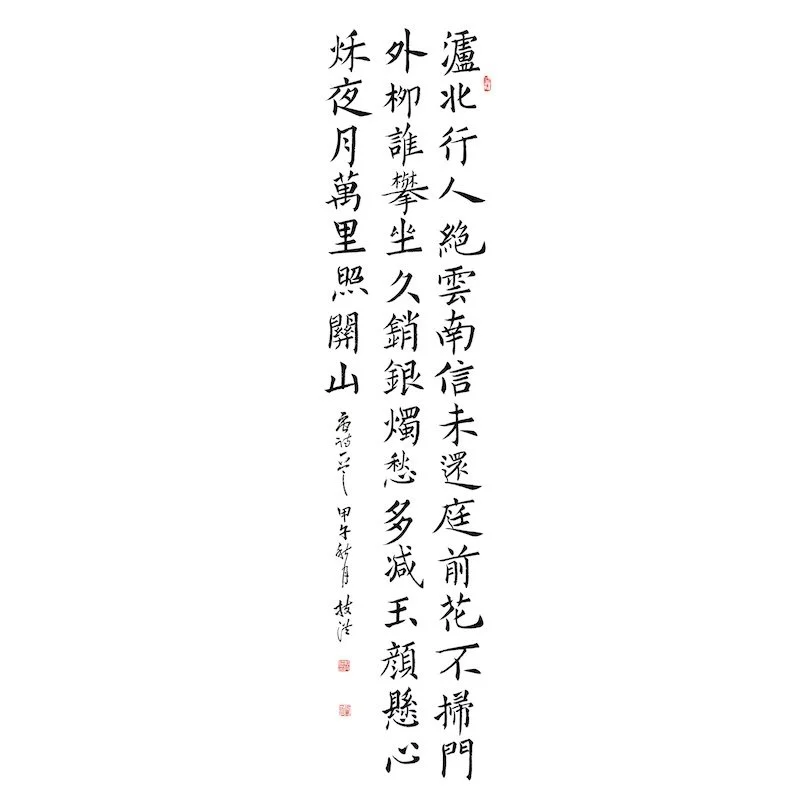 瀘北行人絶雲南信未還庭前花不掃門
外柳誰攀坐久銷銀燭愁多减玉顔懸心
秋夜月萬里照關山
唐詩一首 甲午秋月